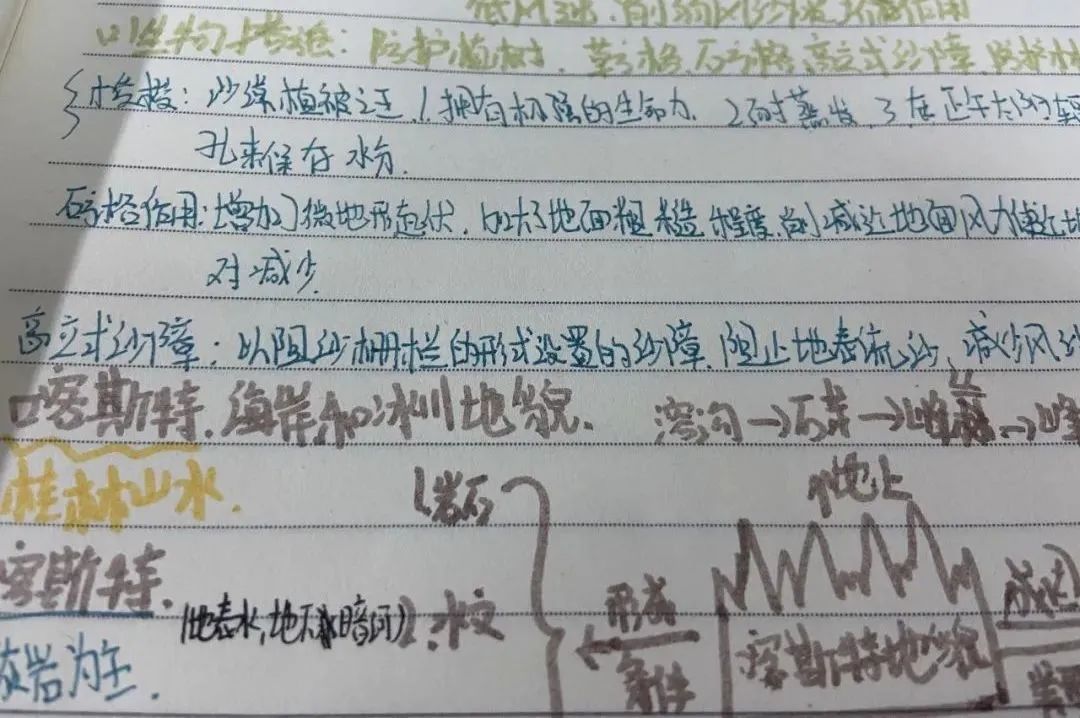 低风速、削弱风沙流
口生物措施：防护植树、草方格、石方格、高立式沙障、防护林
沙漠植被之王 1.拥有极强的生命力 2.耐蒸发 3.在正午
孔来保存水分.
石方格作用：增加了微地形起伏，加大了地面粗糙程度，削减近地面风力使
对减少
高立式沙障：以阻沙栅栏的形式设置的沙障，阻止地表流沙，减少风沙
口喀斯特、海岸和冰川地貌. 溶沟→石芽→峰丛→峰
桂林山水.
1.岩石
地上
喀斯特.
(地表水,地下水暗河)
2.水文
形成
条件
喀斯特地貌
灰岩为主.